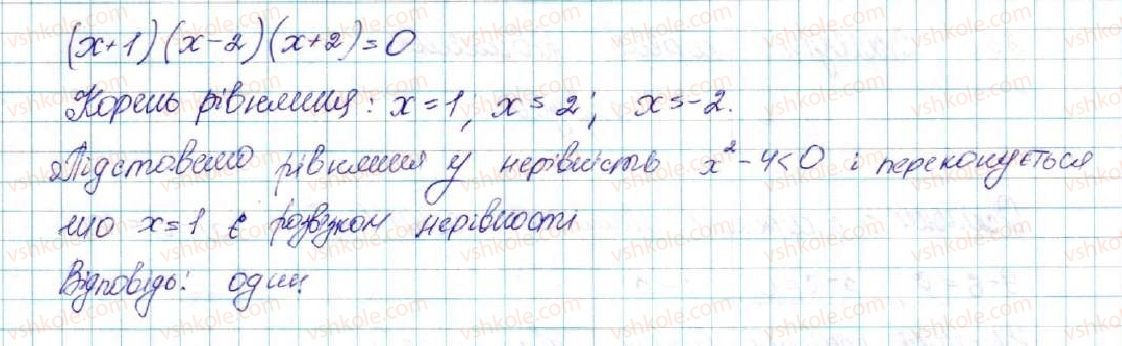 (x+1)(x-2)(x+2)=0
Корень рівняння: x=1; x=2; x=-2.
Підставемо рівняння у нерівність x²-4<0 і переконується
що x=1 є розвзком нерівності
Відповідь: один